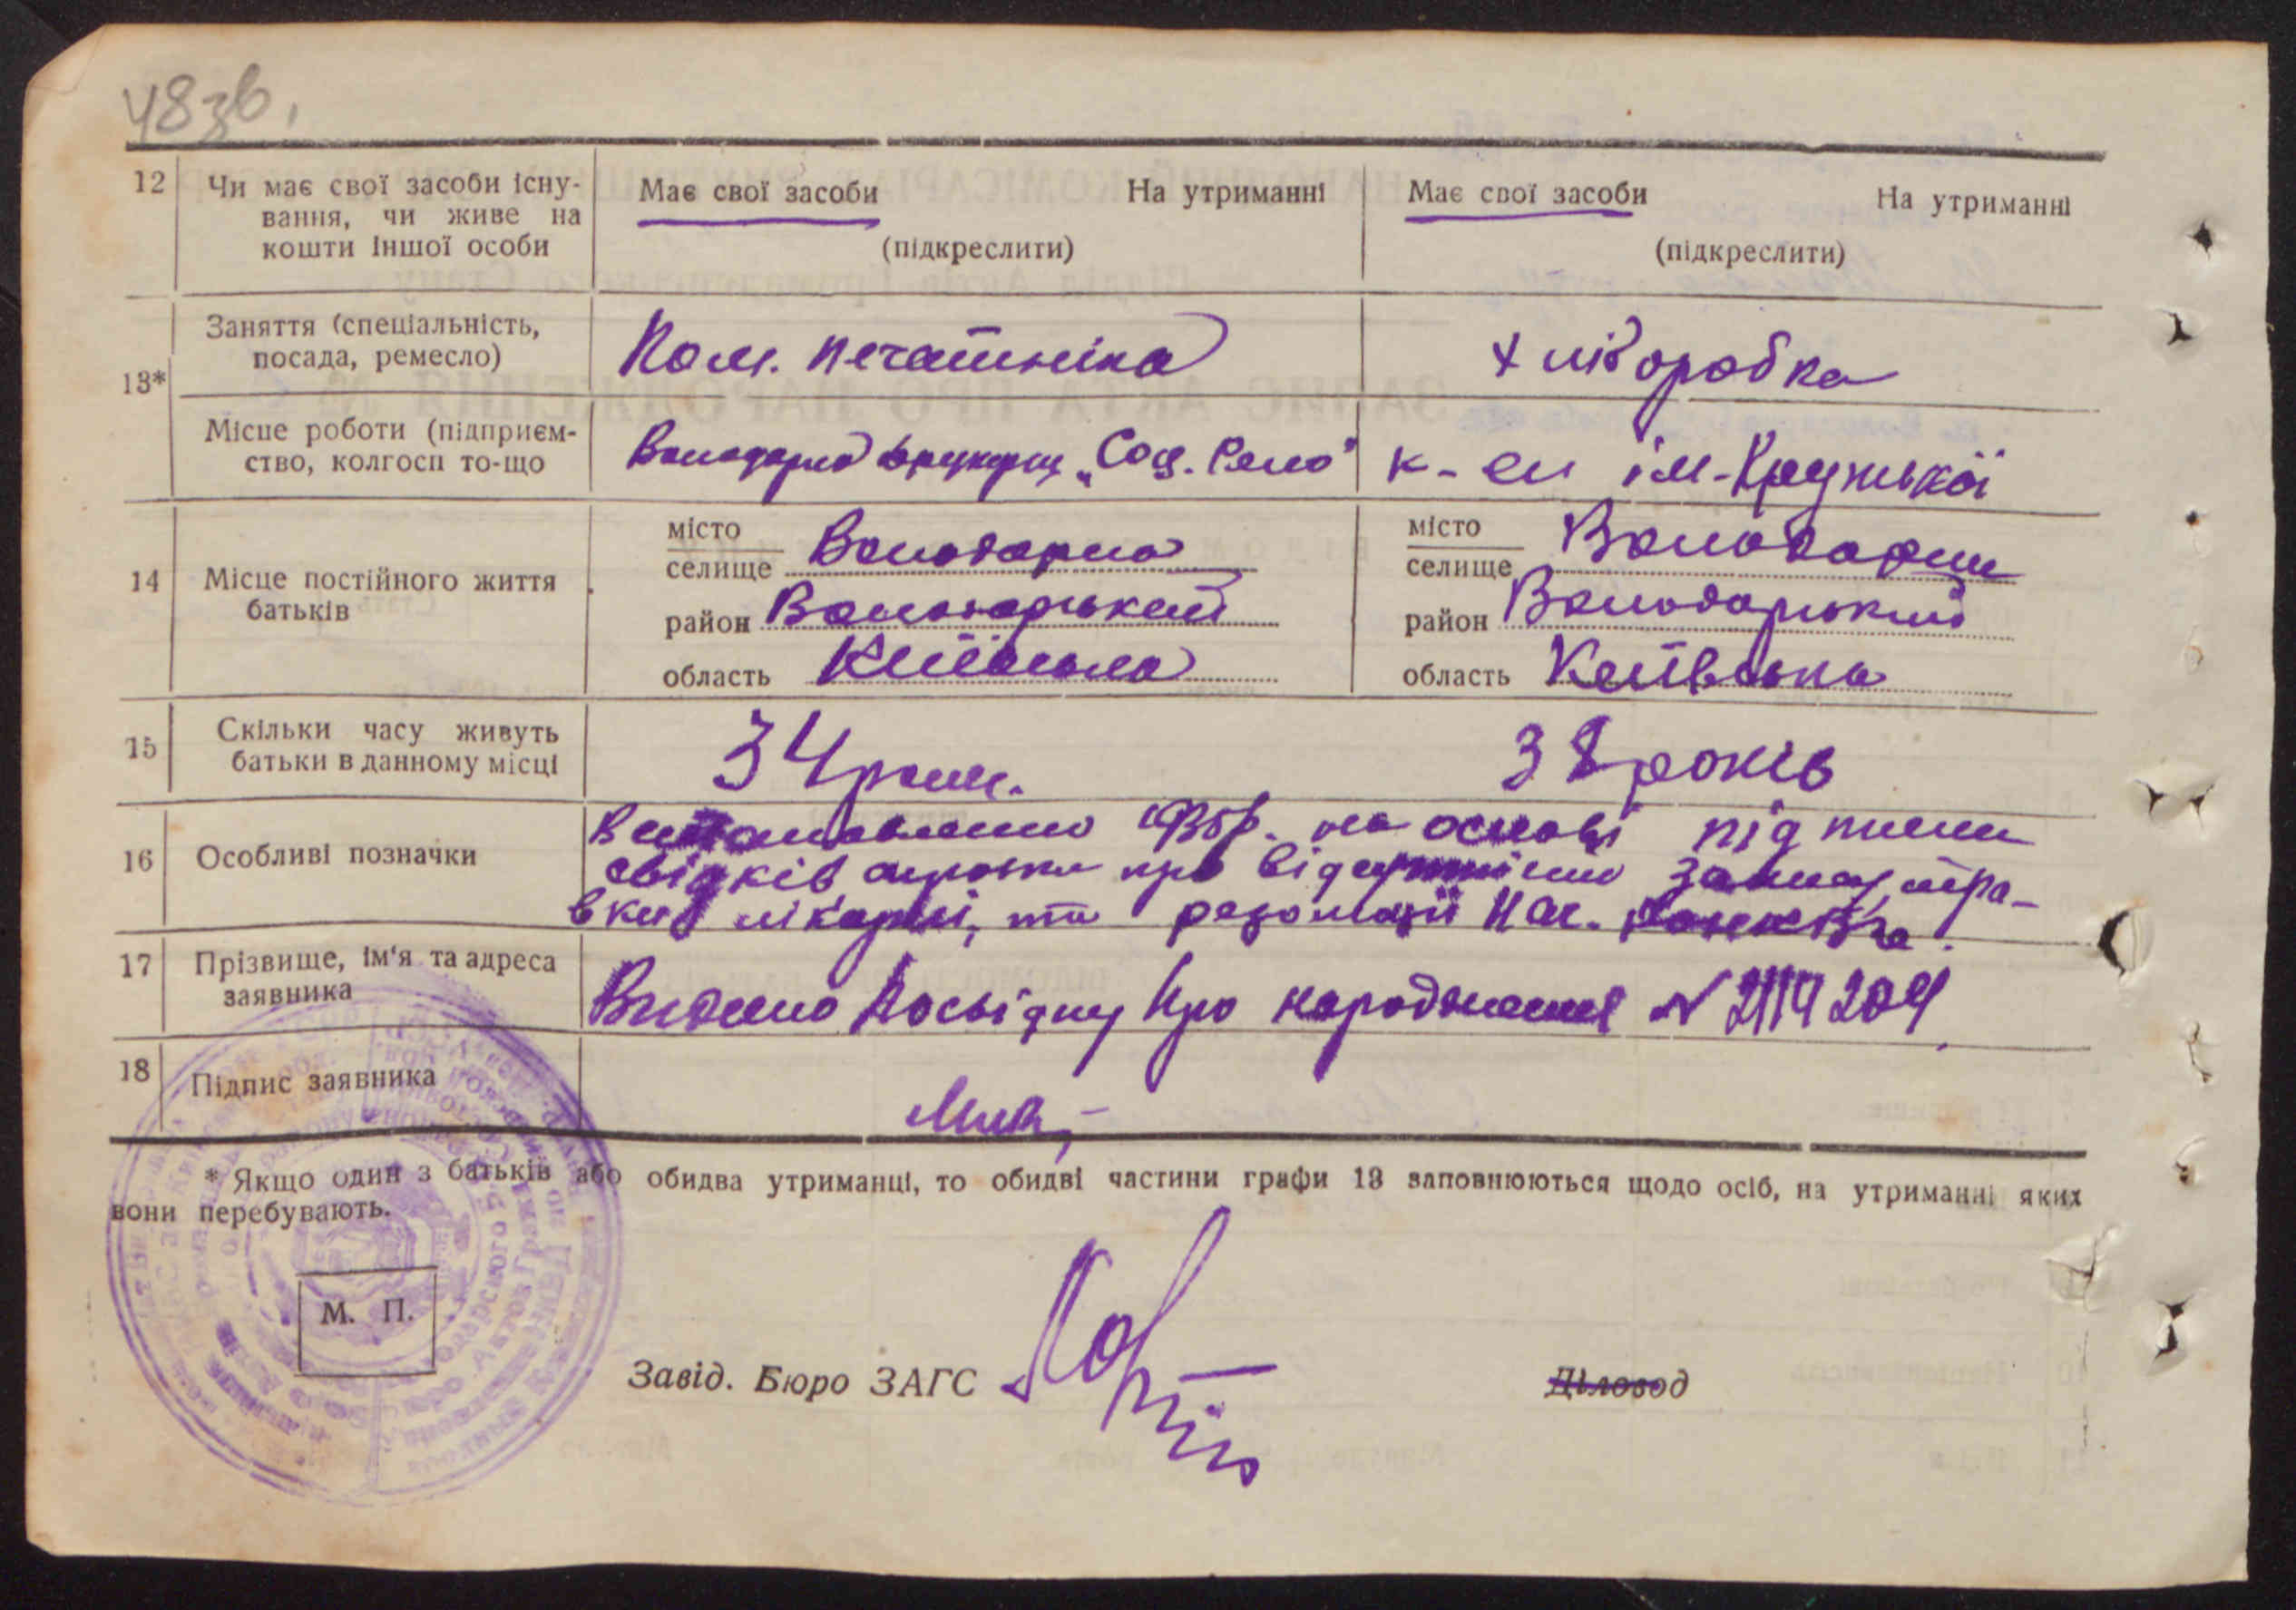 48зв.
12 Чи має свої засоби існу-
вання, чи живе на
кошти іншої особи
Має свої засоби На утриманні
(підкреслити)
Має свої засоби На утриманні
(підкреслити)
13*
Заняття (спеціальність,
посада, ремесло)
Пом. печатніка
хліборобка
Місце роботи (підприєм-
ство, колгосп то-що
"Соц. Село"
к-сп ім. Крупської
14 Місце постійного життя
батьків
місто
селище Володарка
район Володарський
область Київська
місто
селище Володарка
район Володарський
область Київська
15 Скільки часу живуть
батьки в данному місці
34 роки.
38 років
16 Особливі позначки
на основі підписки
свідків справки про відсутність запису,
лікарні, та резолюції Нач.
17 Прізвище, ім'я та адреса
заявника
Видано Посвідку про народження N
18 Підпис заявника
* Якщо один з батьків або обидва утриманці, то обидві частини графи 13 заповнюються щодо осіб, на утриманні яких
вони перебувають.
М. П.
Завід. Бюро ЗАГС
Діловод